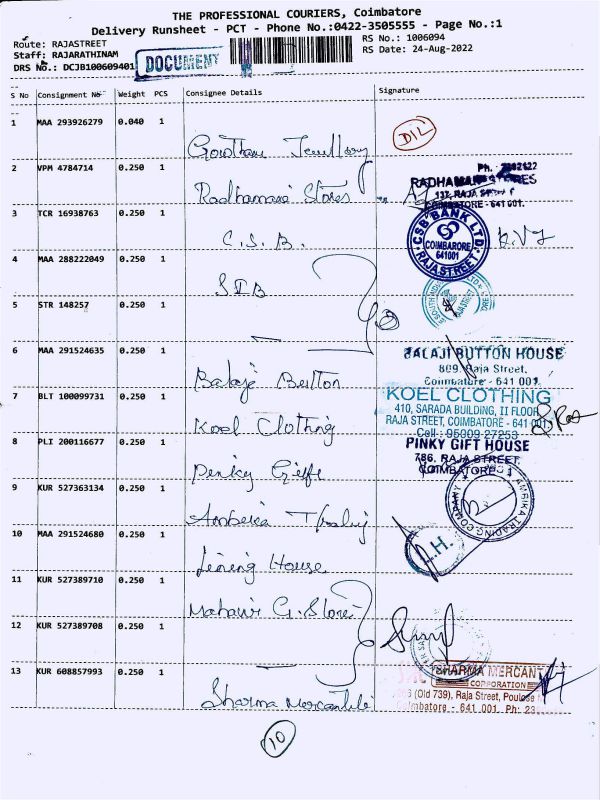 THE PROFESSIONAL COURIERS, Coimbatore
Delivery Runsheet - PCT - Phone No.:0422-3505555 - Page No.:1
Route: RAJASTREET
RS No.: 1006094
Staff: RAJARATHINAM
DOCUMENT
RS Date: 24-Aug-2022
DRS No.: DCJB100609401
S No Consignment No Weight PCS Consignee Details Signature
1 MAA 293926279 0.040 1
Gowtham Jewellary
DIL
2 VPM 4784714 0.250 1
Radhamani Stores
RADHAMANI STORES
137, RAJA STREET
COIMBATORE - 641 001.
3 TCR 16938763 0.250 1
C.S.B.
CSB BANK LTD. COIMBATORE 641001 RAJASTREET
4 MAA 288222049 0.250 1
SIB
5 STR 148257 0.250 1
6 MAA 291524635 0.250 1
Balaji Button
BALAJI BUTTON HOUSE
869, Raja Street,
Coimbatore - 641 001.
7 BLT 100099731 0.250 1
Koel Clothing
KOEL CLOTHING
410, SARADA BUILDING, II FLOOR
RAJA STREET, COIMBATORE - 641 001.
Cell : 95009 27253
8 PLI 200116677 0.250 1
Pinky Gift
PINKY GIFT HOUSE
786, RAJA STREET,
COIMBATORE - 1
9 KUR 527363134 0.250 1
AMRIKA TRADING COMPANY
10 MAA 291524680 0.250 1
Lining House
A.H.
11 KUR 527389710 0.250 1
Mahavir G. Stores
12 KUR 527389708 0.250 1
13 KUR 608857993 0.250 1
Sharma Mercantile
SHARMA MERCANT
CORPORATION
(Old 739), Raja Street,
Coimbatore - 641 001. Ph:
10